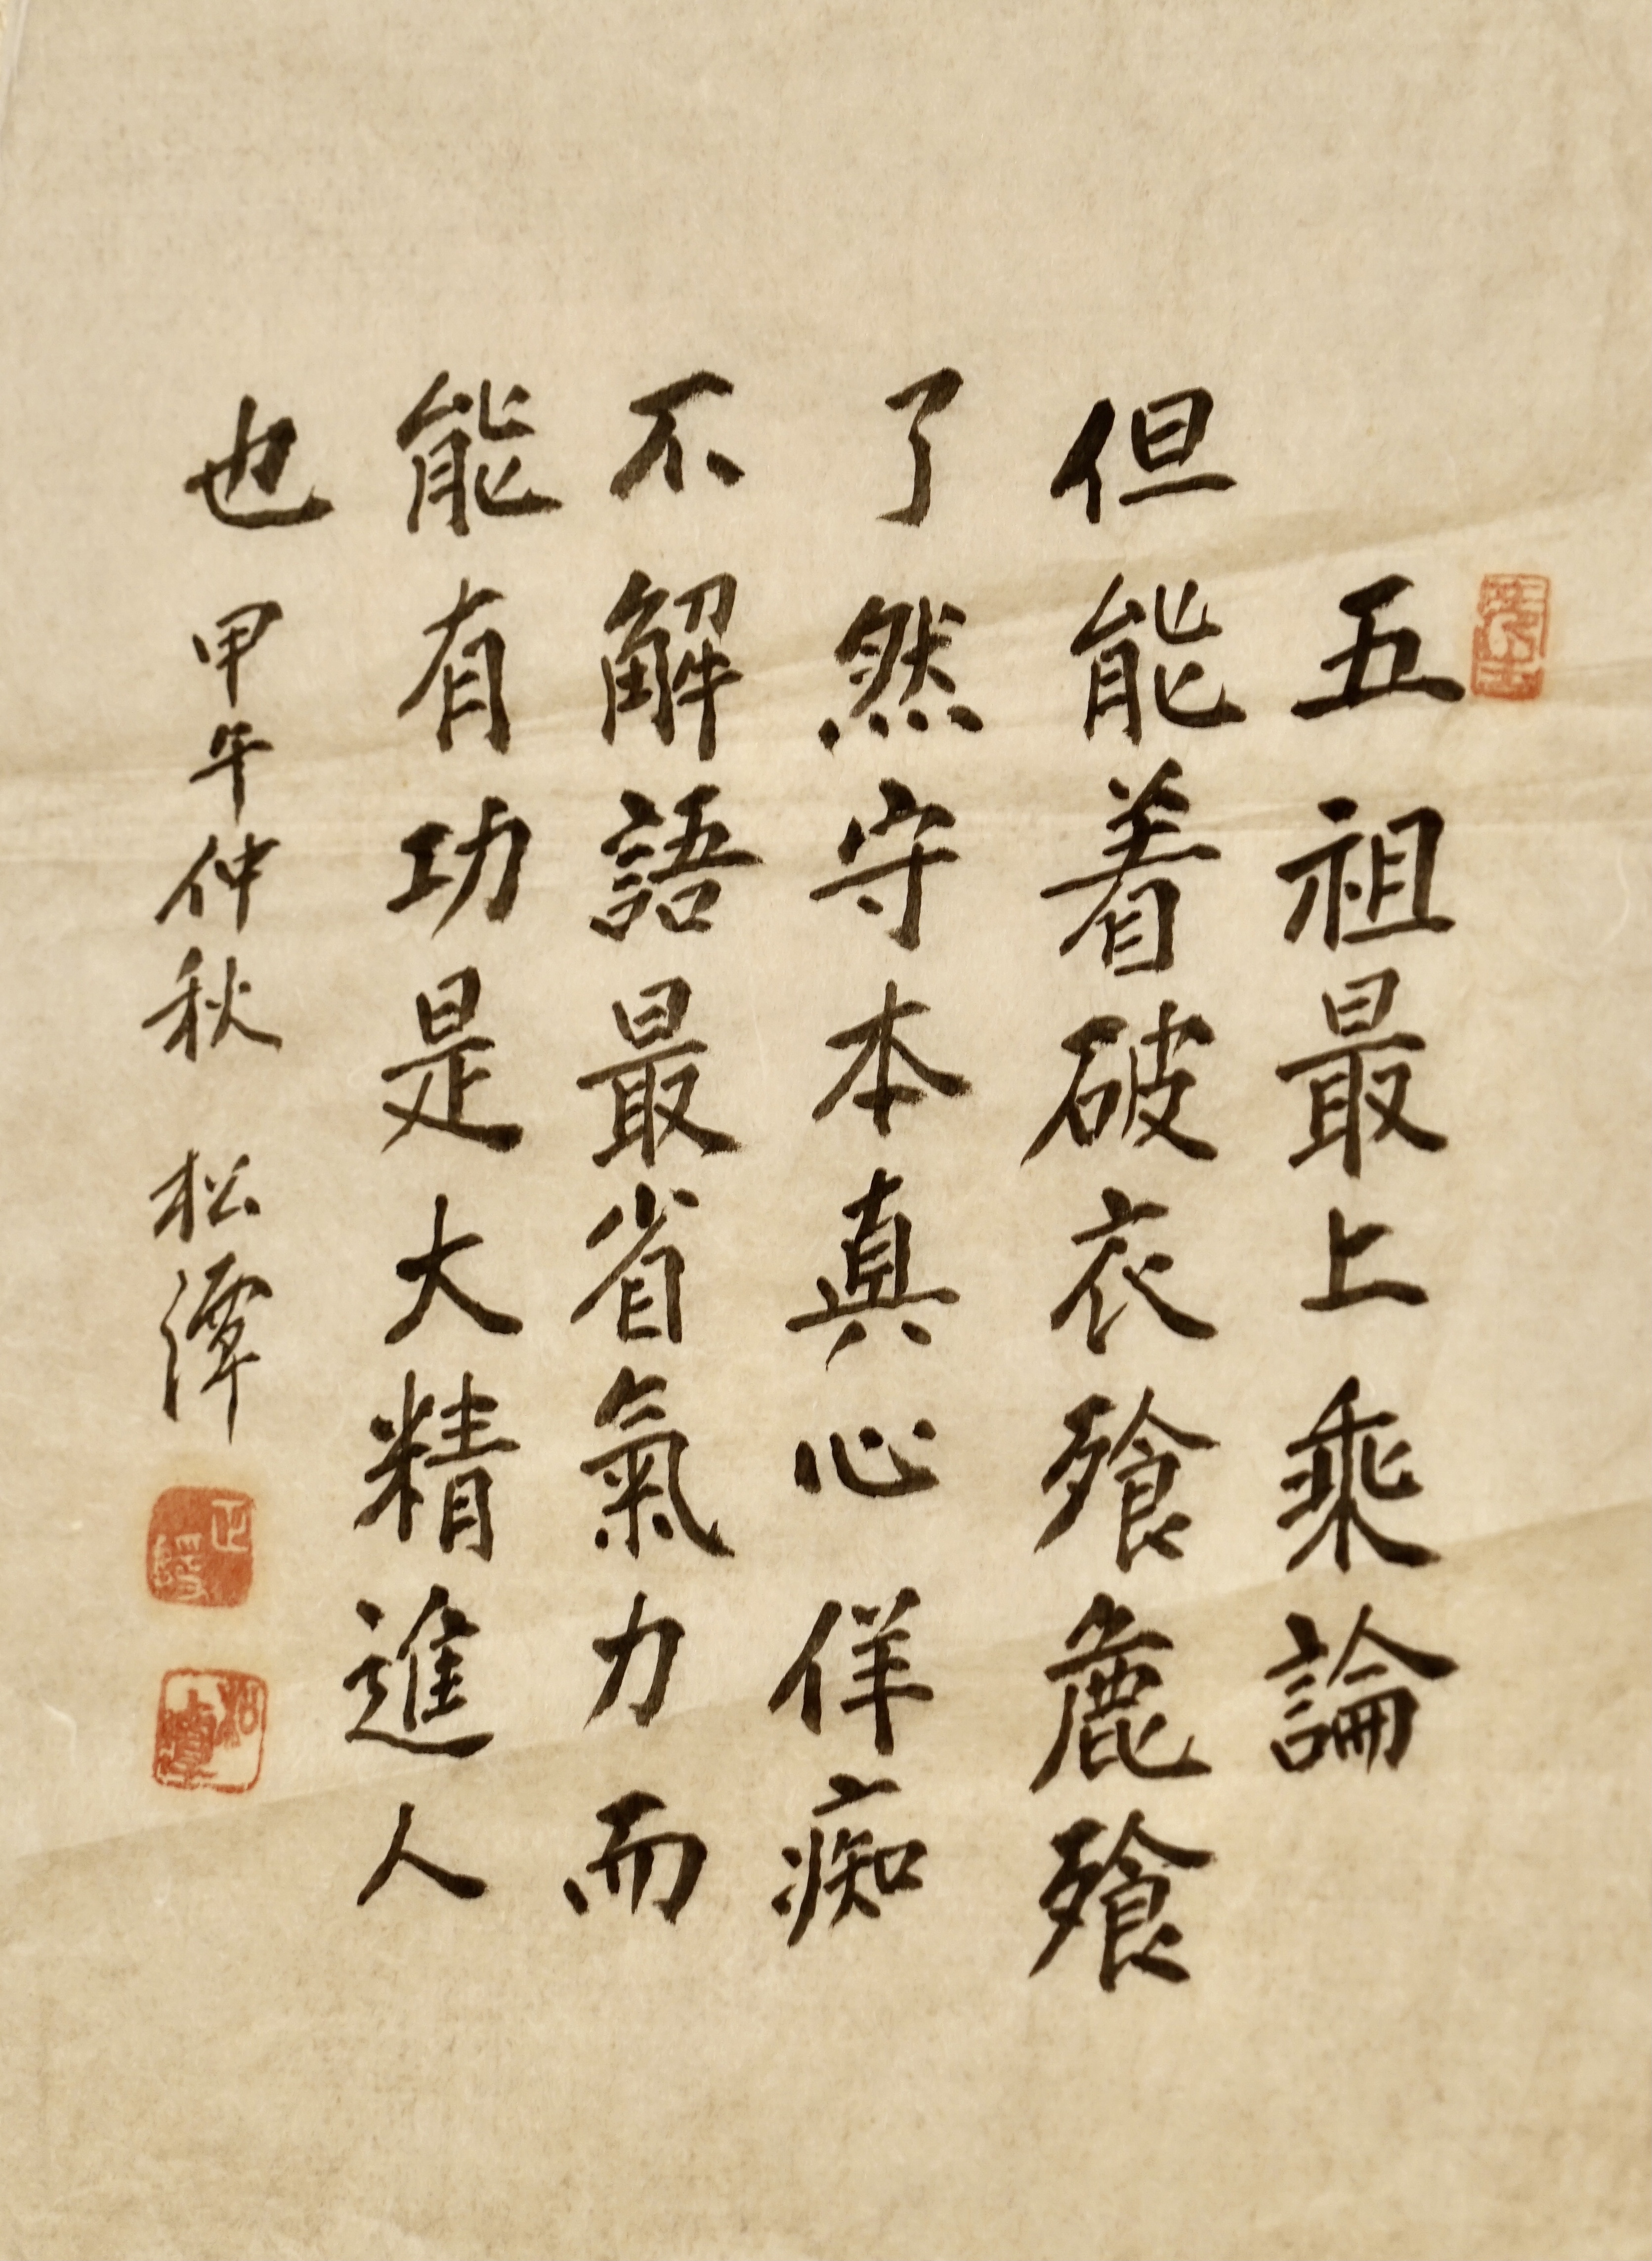 五祖最上乘論
但能着破衣飱麁飱
了然守本真心佯痴
不解語最省氣力而
能有功是大精進人
也 甲午仲秋 松潭